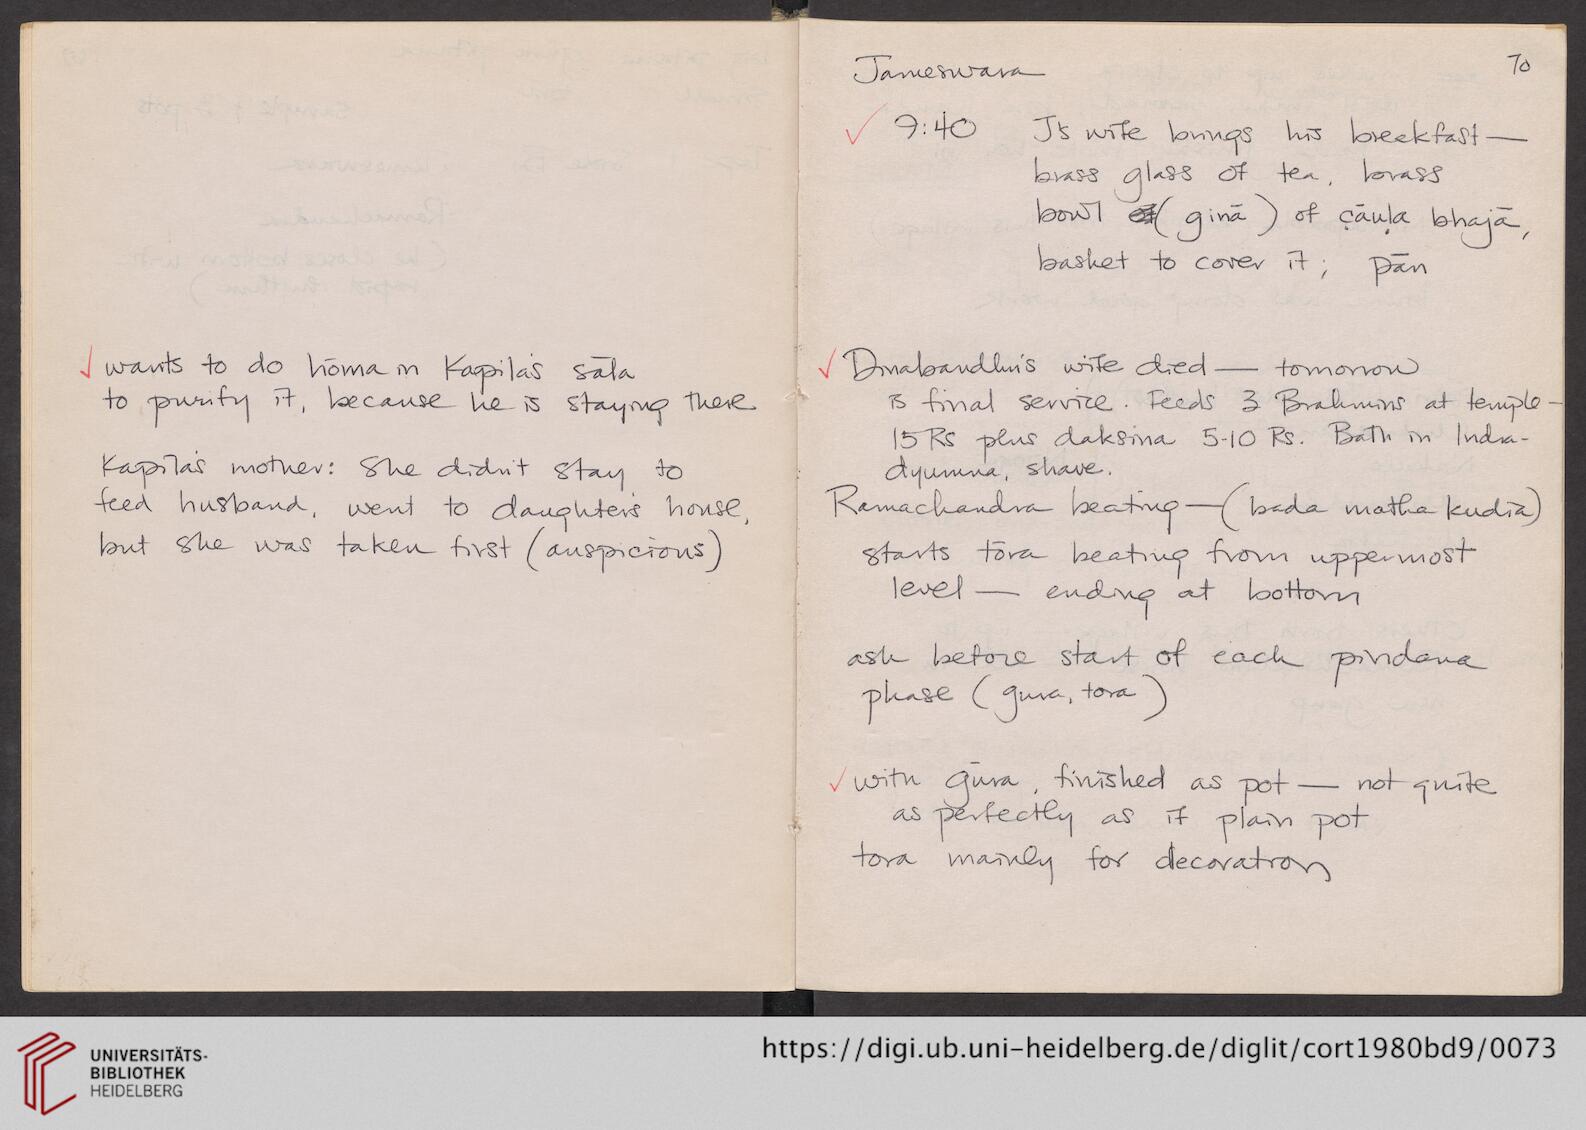 ✓ wants to do hōma in Kapila's sāla
to purify it, because he is staying there
Kapila's mother: She didn't stay to
feed husband, went to daughter's house,
but she was taken first (auspicious)
Jameswara
70
✓ 9:40 J's wife brings his breakfast —
brass glass of tea, brass
bowl (ginā) of cāuḷa bhajā,
basket to cover it; pān
✓ Dinabandhu's wife died — tomorrow
is final service. Feeds 3 Brahmins at temple —
15 Rs plus daksina 5-10 Rs. Bath in Indra-
dyumna, shave.
Ramachandra beating — (bada matha kudia)
starts tōra beating from uppermost
level — ending at bottom
ask before start of each pindana
phase (gura, tora)
✓ with gūra, finished as pot — not quite
as perfectly as if plain pot
tora mainly for decoration
UNIVERSITÄTS-
BIBLIOTHEK
HEIDELBERG
https://digi.ub.uni-heidelberg.de/diglit/cort1980bd9/0073